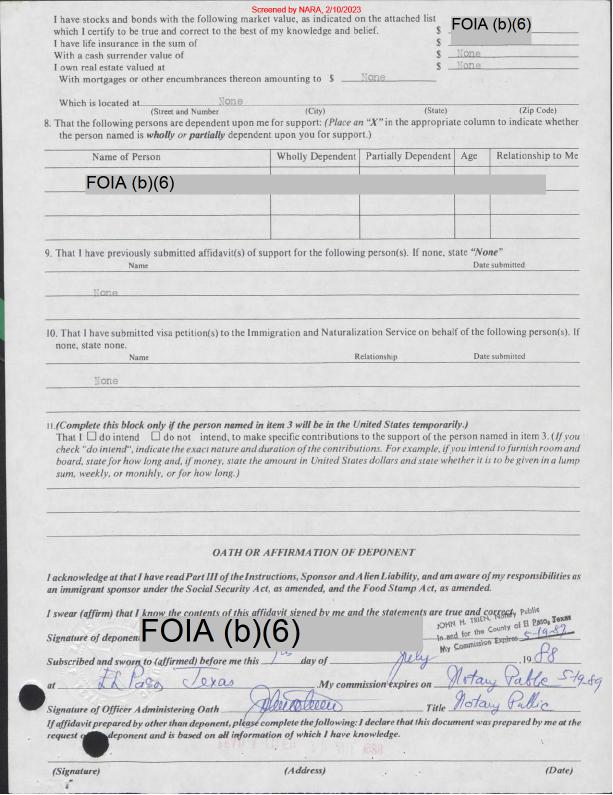 Screened by NARA, 2/10/2023
I have stocks and bonds with the following market value, as indicated on the attached list
which I certify to be true and correct to the best of my knowledge and belief. $ FOIA (b)(6)
I have life insurance in the sum of $
With a cash surrender value of $ None
I own real estate valued at $ None
With mortgages or other encumbrances thereon amounting to $ None
Which is located at None
(Street and Number) (City) (State) (Zip Code)
8. That the following persons are dependent upon me for support: (Place an "X" in the appropriate column to indicate whether
the person named is wholly or partially dependent upon you for support.)
Name of Person Wholly Dependent Partially Dependent Age Relationship to Me
FOIA (b)(6)
9. That I have previously submitted affidavit(s) of support for the following person(s). If none, state "None"
Name Date submitted
None
10. That I have submitted visa petition(s) to the Immigration and Naturalization Service on behalf of the following person(s). If
none, state none.
Name Relationship Date submitted
None
11.(Complete this block only if the person named in item 3 will be in the United States temporarily.)
That I ☐ do intend ☐ do not intend, to make specific contributions to the support of the person named in item 3. (If you
check "do intend", indicate the exact nature and duration of the contributions. For example, if you intend to furnish room and
board, state for how long and, if money, state the amount in United States dollars and state whether it is to be given in a lump
sum, weekly, or monthly, or for how long.)
OATH OR AFFIRMATION OF DEPONENT
I acknowledge at that I have read Part III of the Instructions, Sponsor and Alien Liability, and am aware of my responsibilities as
an immigrant sponsor under the Social Security Act, as amended, and the Food Stamp Act, as amended.
I swear (affirm) that I know the contents of this affidavit signed by me and the statements are true and correct.
JOHN H. TRIEN, Notary Public
In and for the County of El Paso, Texas
My Commission Expires 5-19-89
Signature of deponent FOIA (b)(6)
Subscribed and sworn to (affirmed) before me this 1st day of July ,19 88
at El Paso Texas .My commission expires on Notary Public 5-19-89
Signature of Officer Administering Oath Title Notary Public
If affidavit prepared by other than deponent, please complete the following: I declare that this document was prepared by me at the
request o deponent and is based on all information of which I have knowledge.
(Signature) (Address) (Date)